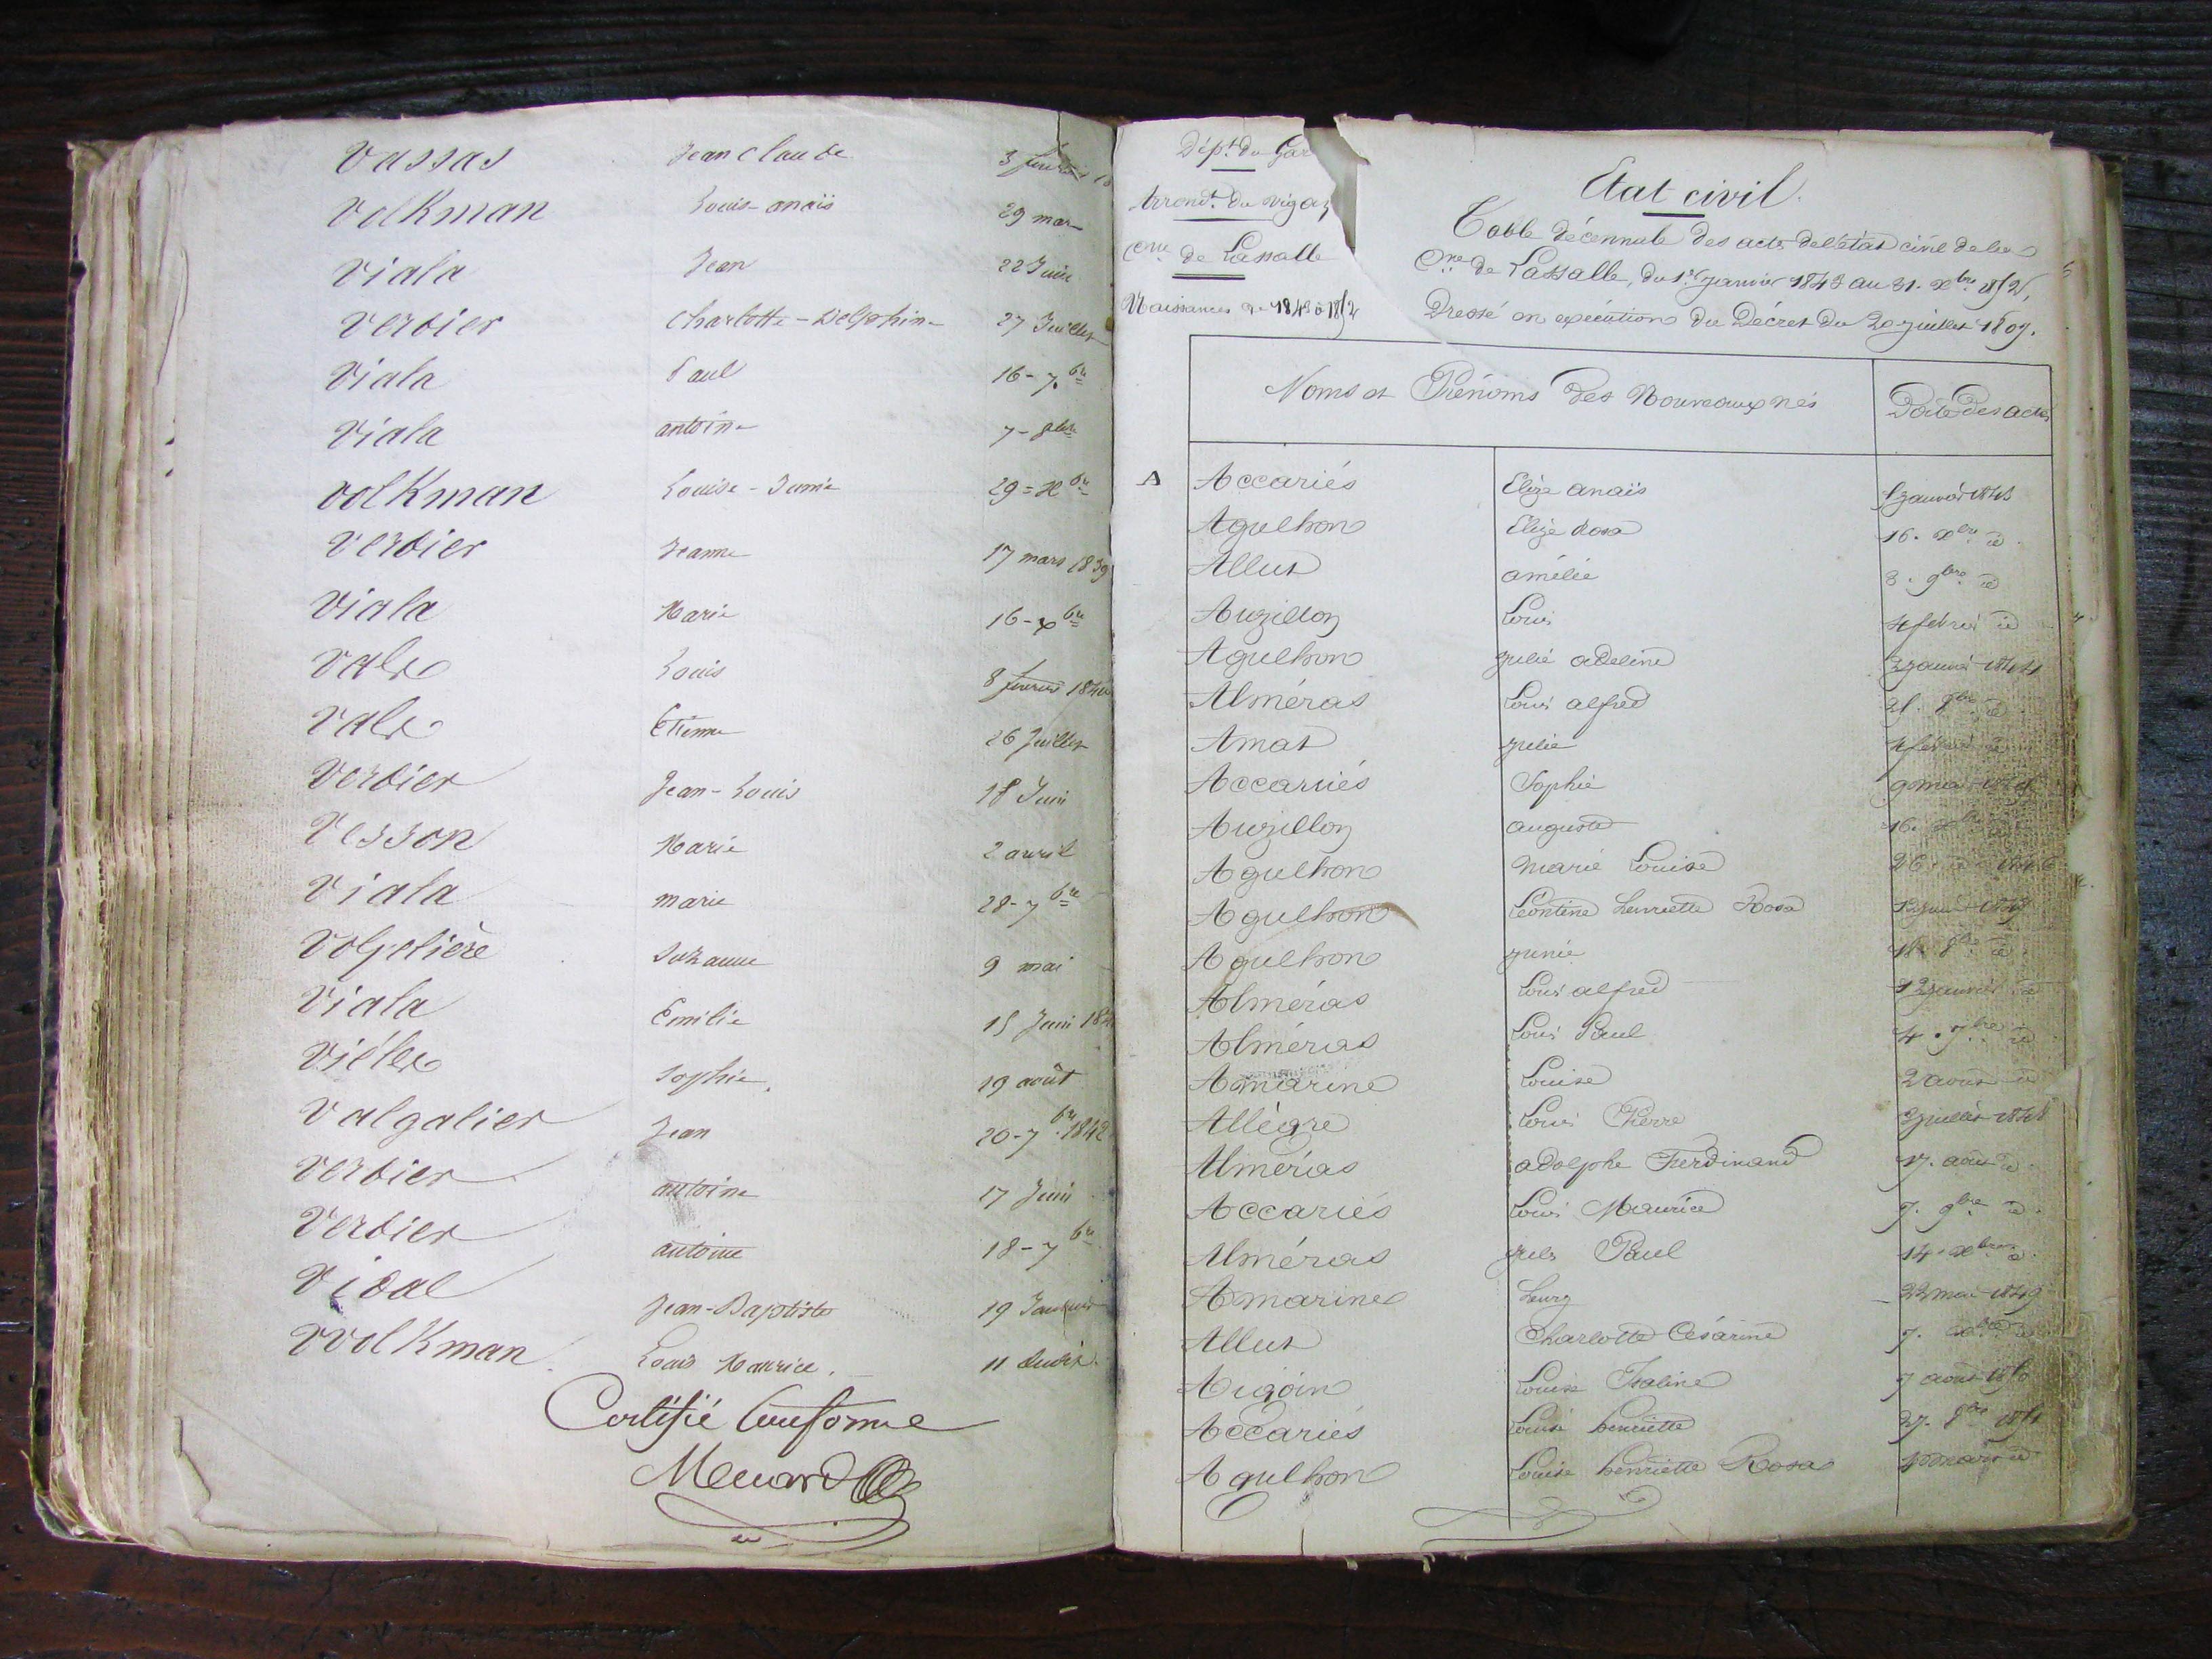 Vassas Jean Claude 3 février
Volkman Louis-anaïs 29 mar
Viala Jean 22 Juin
Verdier Charlotte-Delphine 27 Juillet
Viala Paul 16 - 7bre
Viala antoine 7 - 8bre
volkman Louise - Junie 29 = xbre
Verdier Jeanne 17 mars 1839
Viala Marie 16 - xbre
Vale Louis 8 février 1840
Vale Etienne 26 Juillet
Verdier Jean-Louis 18 Juin
Vesson Marie 2 avril
Viala marie 28 - 7bre
Volpelière Suzanne 9 mai
Viala Emilie 15 Juin 184
Viéles Sophie. 19 août
Valgalier Jean 20 - 7bre 1842
Verdier antoine 17 Juin
Verdier antoine 18 - 7bre
Vidal Jean-Baptiste 19 Janvier
Volkman Louis Maurice. 11
Certifié Conforme
Menard
Dépt. du Gar
Arrondt. du Vigan
Cne de Lassalle
Naissances de 1843 à 1852
Etat civil.
Table décennale des actes de l'état civil de la
Cne de Lassalle, du 1er janvier 1843 au 31. xbre 1852,
Dressé en exécution du Décret du 20 juillet 1807.
Noms et Prénoms des Nouveaux nés Date des actes
A Accariés Elize anaïs janvier 1843
Agulhon Elize rosa 16. xbre id.
Allut amélie 8. 9bre id
Auzillon Louis 4 février id
Agulhon julie adeline 3 janvier 1844
Alméras Louis alfred 21. 8bre id.
Amat julie 4 février id
Accariés Sophie 9 mai
Auzillon auguste 16.
Agulhon Marie Louise 26. 1846
Agulhon Léontine henriette Rosa
Agulhon junie 18. 8bre id.
Alméras Louis alfred 12 janvier id
Alméras Louis Paul 4. 7bre id
Amarine Louise 2 août id
Allègre Louis Pierre juillet 1848
Alméras adolphe Ferdinand 17. août id.
Accariés Louis Maurice 7. 9bre id.
Alméras jules Paul 14. xbre id.
Amarine henry 22 mai 1849
Allut Charlotte Césarine 7. xbre id
Auzoin Louise Isaline 7 août 1850
Accariés Louise henriette 27. 8bre 1851
Agulhon Louise henriette Rosa mars id